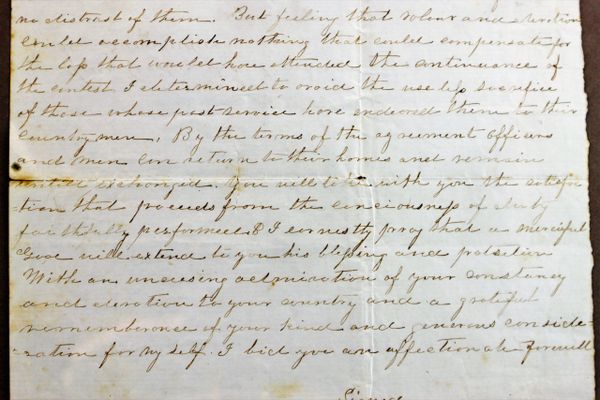 no distrust of them. But feeling that valour and devotion
could accomplish nothing that could compensate for
the loss that would have attended the continuance of
the contest I determined to avoid the useless sacrifice
of those whose past service have endeared them to their
Countrymen, By the terms of the agreement officers
and men can return to their homes and remain
untill exchanged. You will take with you the satisfac
-tion that proceeds from the consciousness of duty
faithfully performed & I earnestly pray that a merciful
God will extend to you his blessing and protection
With an unceasing admiration of your constancy
and devotion to your country and a grateful
rememberance of your kind and generous conside-
-ration for my self. I bid you an affectionate farewell
Signed